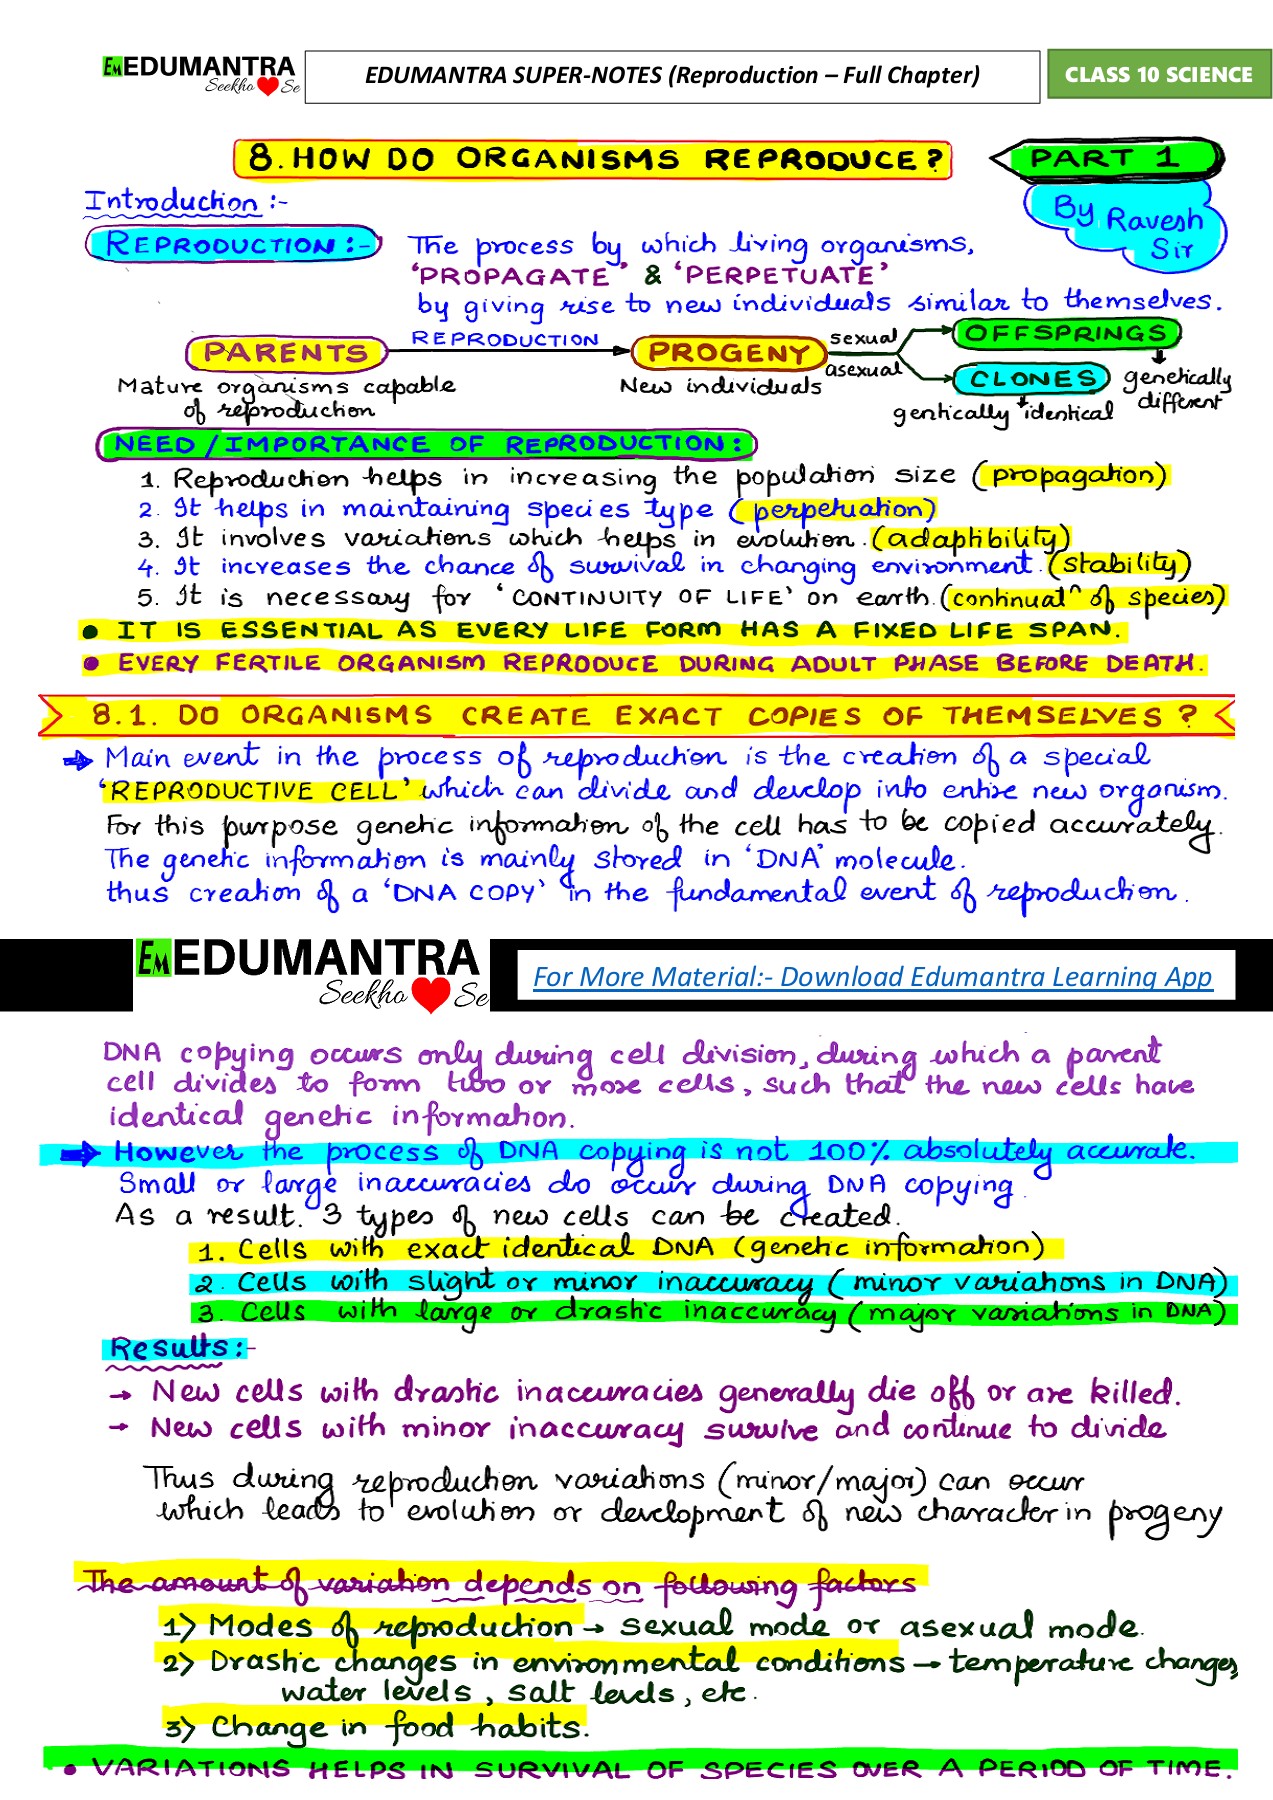 EM EDUMANTRA
Seekho ❤ Se
EDUMANTRA SUPER-NOTES (Reproduction – Full Chapter)
CLASS 10 SCIENCE
8. HOW DO ORGANISMS REPRODUCE?
PART 1
By Ravesh
Sir
Introduction :-
REPRODUCTION :-
The process by which living organisms,
'PROPAGATE' & 'PERPETUATE'
by giving rise to new individuals similar to themselves.
PARENTS
REPRODUCTION
PROGENY
sexual
asexual
OFFSPRINGS
CLONES
Mature organisms capable
of reproduction
New individuals
genetically
different
gentically identical
NEED / IMPORTANCE OF REPRODUCTION :
1. Reproduction helps in increasing the population size (propagation)
2. It helps in maintaining species type (perpetuation)
3. It involves variations which helps in evolution. (adaptibility)
4. It increases the chance of survival in changing environment. (stability)
5. It is necessary for 'CONTINUITY OF LIFE' on earth. (continuatⁿ of species)
• IT IS ESSENTIAL AS EVERY LIFE FORM HAS A FIXED LIFE SPAN.
• EVERY FERTILE ORGANISM REPRODUCE DURING ADULT PHASE BEFORE DEATH.
8.1. DO ORGANISMS CREATE EXACT COPIES OF THEMSELVES ?
→ Main event in the process of reproduction is the creation of a special
'REPRODUCTIVE CELL' which can divide and develop into entire new organism.
For this purpose genetic information of the cell has to be copied accurately.
The genetic information is mainly stored in 'DNA' molecule.
thus creation of a 'DNA COPY' in the fundamental event of reproduction.
EM EDUMANTRA
Seekho ❤ Se
For More Material:- Download Edumantra Learning App
DNA copying occurs only during cell division, during which a parent
cell divides to form two or more cells, such that the new cells have
identical genetic information.
→ However the process of DNA copying is not 100% absolutely accurate.
Small or large inaccuracies do occur during DNA copying.
As a result. 3 types of new cells can be created.
1. Cells with exact identical DNA (genetic information)
2. Cells with slight or minor inaccuracy (minor variations in DNA)
3. Cells with large or drastic inaccuracy (major variations in DNA)
Results :-
→ New cells with drastic inaccuracies generally die off or are killed.
→ New cells with minor inaccuracy survive and continue to divide
Thus during reproduction variations (minor/major) can occur
which leads to evolution or development of new character in progeny
The amount of variation depends on following factors
1) Modes of reproduction → sexual mode or asexual mode.
2) Drastic changes in environmental conditions → temperature changes,
water levels, salt levels, etc.
3) Change in food habits.
• VARIATIONS HELPS IN SURVIVAL OF SPECIES OVER A PERIOD OF TIME.